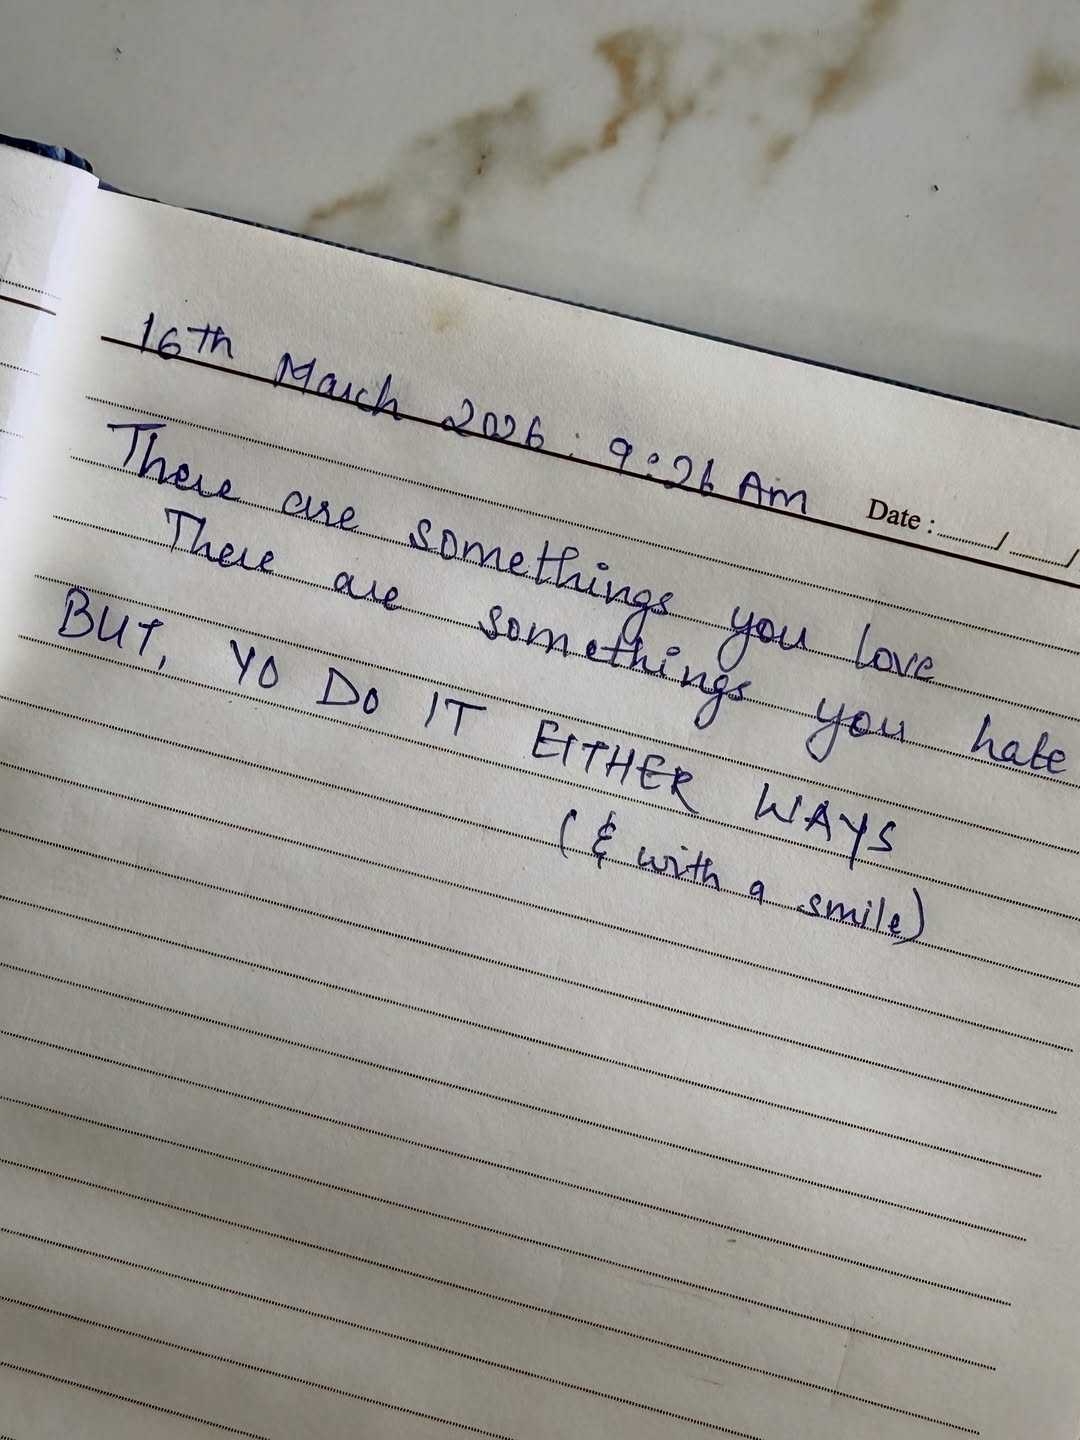 16th March 2026 : 9:26 Am
Date : ...../.....
There are somethings you love
There are somethings you hate
BUT, YO DO IT EITHER WAYS
(& with a smile)